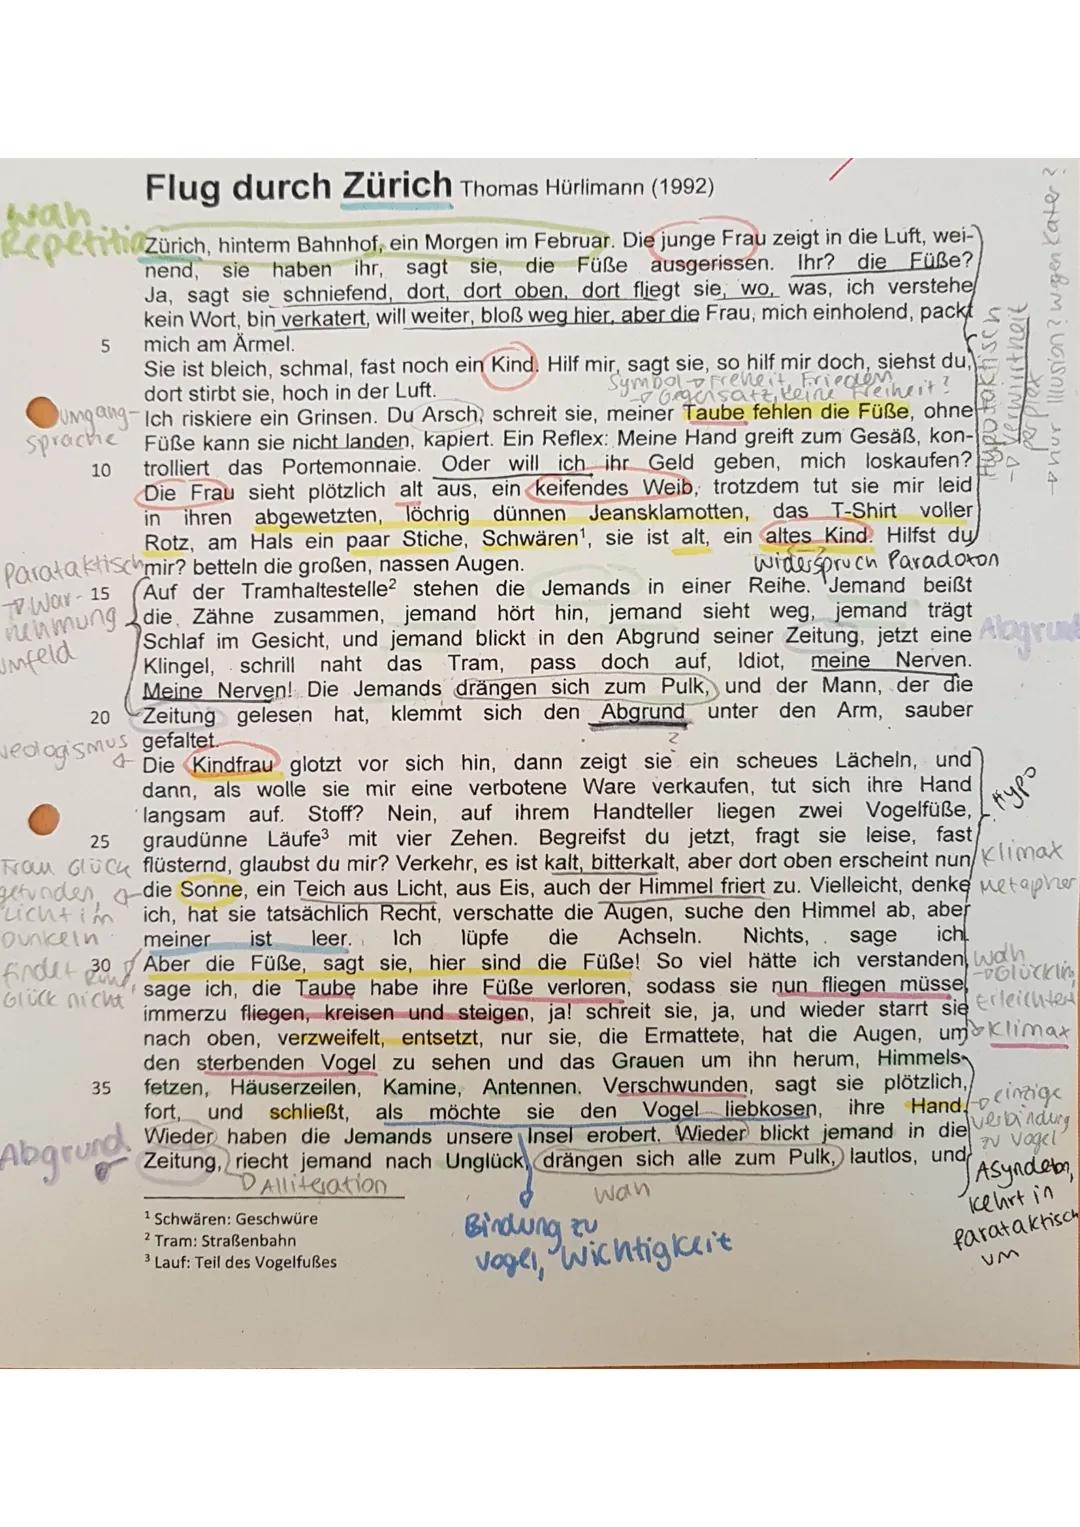 Flug durch Zürich Thomas Hürlimann (1992)
wah
Repetitio
Zürich, hinterm Bahnhof, ein Morgen im Februar. Die junge Frau zeigt in die Luft, wei-
nend, sie haben ihr, sagt sie, die Füße ausgerissen. Ihr? die Füße?
Ja, sagt sie schniefend, dort, dort oben, dort fliegt sie, wo, was, ich verstehe
kein Wort, bin verkatert, will weiter, bloß weg hier, aber die Frau, mich einholend, packt
5 mich am Ärmel.
Sie ist bleich, schmal, fast noch ein Kind. Hilf mir, sagt sie, so hilf mir doch, siehst du,
dort stirbt sie, hoch in der Luft.
Symbol → Freiheit, Frieden
→ Gegensatz, keine Freiheit?
Ich riskiere ein Grinsen. Du Arsch, schreit sie, meiner Taube fehlen die Füße, ohne
Füße kann sie nicht landen, kapiert. Ein Reflex: Meine Hand greift zum Gesäß, kon-
10 trolliert das Portemonnaie. Oder will ich ihr Geld geben, mich loskaufen?
Die Frau sieht plötzlich alt aus, ein keifendes Weib, trotzdem tut sie mir leid
in ihren abgewetzten, löchrig dünnen Jeansklamotten, das T-Shirt voller
Rotz, am Hals ein paar Stiche, Schwären¹, sie ist alt, ein altes Kind. Hilfst du
mir? betteln die großen, nassen Augen.
widerspruch Paradoxon
umgang-
sprache
Hypotaktisch
→ Verwirrtheit
perplex
→ nur Illusion? wegen Kater?
15 Auf der Tramhaltestelle² stehen die Jemands in einer Reihe. Jemand beißt
die Zähne zusammen, jemand hört hin, jemand sieht weg, jemand trägt
Schlaf im Gesicht, und jemand blickt in den Abgrund seiner Zeitung, jetzt eine
Klingel, schrill naht das Tram, pass doch auf, Idiot, meine Nerven.
Meine Nerven! Die Jemands drängen sich zum Pulk, und der Mann, der die
20 Zeitung gelesen hat, klemmt sich den Abgrund unter den Arm, sauber
gefaltet.
?
Parataktisch
→ War-
nehmung
Umfeld
Abgrund
Neologismus
Die Kindfrau glotzt vor sich hin, dann zeigt sie ein scheues Lächeln, und
dann, als wolle sie mir eine verbotene Ware verkaufen, tut sich ihre Hand
langsam auf. Stoff? Nein, auf ihrem Handteller liegen zwei Vogelfüße,
25 graudünne Läufe³ mit vier Zehen. Begreifst du jetzt, fragt sie leise, fast
flüsternd, glaubst du mir? Verkehr, es ist kalt, bitterkalt, aber dort oben erscheint nun
die Sonne, ein Teich aus Licht, aus Eis, auch der Himmel friert zu. Vielleicht, denke
ich, hat sie tatsächlich Recht, verschatte die Augen, suche den Himmel ab, aber
meiner ist leer. Ich lüpfe die Achseln. Nichts, sage ich.
30 Aber die Füße, sagt sie, hier sind die Füße! So viel hätte ich verstanden,
sage ich, die Taube habe ihre Füße verloren, sodass sie nun fliegen müsse,
immerzu fliegen, kreisen und steigen, ja! schreit sie, ja, und wieder starrt sie
nach oben, verzweifelt, entsetzt, nur sie, die Ermattete, hat die Augen, um
den sterbenden Vogel zu sehen und das Grauen um ihn herum, Himmels-
35 fetzen, Häuserzeilen, Kamine, Antennen. Verschwunden, sagt sie plötzlich,
fort, und schließt, als möchte sie den Vogel liebkosen, ihre Hand.
Wieder haben die Jemands unsere Insel erobert. Wieder blickt jemand in die
Zeitung, riecht jemand nach Unglück, drängen sich alle zum Pulk, lautlos, und
Hypo
Klimax
Metapher
Frau Glück
gefunden,
Licht im
Dunkeln
findet
Glück nicht
wah
→ Glücklich,
Erleichtert
→ Klimax
→ einzige
verbindung
zu Vogel
Asyndeton,
kehrt in
parataktisch
um
Abgrund
→ Alliteration
wah
Bindung zu
vogel, Wichtigkeit
¹ Schwären: Geschwüre
² Tram: Straßenbahn
³ Lauf: Teil des Vogelfußes